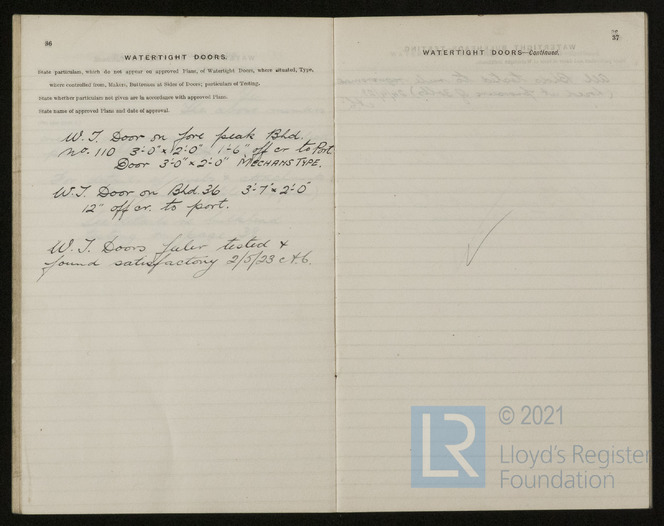 86
WATERTIGHT DOORS.
State particulars, which do not appear on approved Plans, of Watertight Doors, where situated, Type,
where controlled from, Makers, Buttresses at Sides of Doors; particulars of Testing.
State whether particulars not given are in accordance with approved Plans.
State name of approved Plans and date of approval.
W.T. Door on fore peak Bhd.
No. 110 3'-0" x 2'-0" 1'-6" off cr to Port
Door 3'-0" x 2'-0" MECHANS TYPE.
W.T. Door on Bhd. 36 3'-7" x 2'-0"
12" off cr. to port.
W.T. Doors tested &
found satisfactory 2/5/23
37
WATERTIGHT DOORS—Continued.
LR
© 2021
Lloyd's Register
Foundation